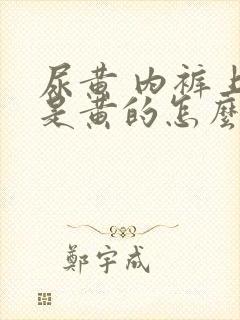 尿黄 内裤上
是黄的怎麼
鄭宇成